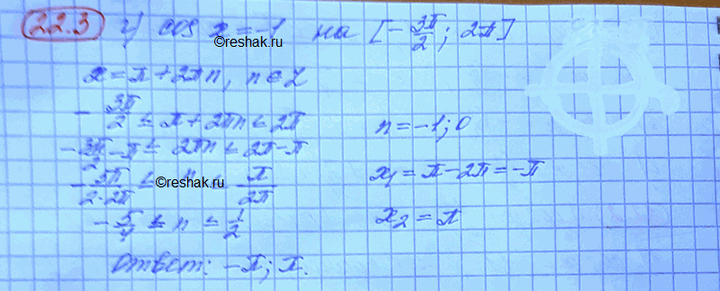 22.3 г) cos x = -1 на [-3π/2; 2π]
©reshak.ru
x = π + 2πn, n ∈ Z
-3π/2 ≤ π + 2πn ≤ 2π
n = -1; 0
-3π/2 - π ≤ 2πn ≤ 2π - π
-5π/2·2π ≤ n ≤ π/2π
©reshak.ru
x₁ = π - 2π = -π
-5/4 ≤ n ≤ 1/2
x₂ = π
Ответ: -π; π.